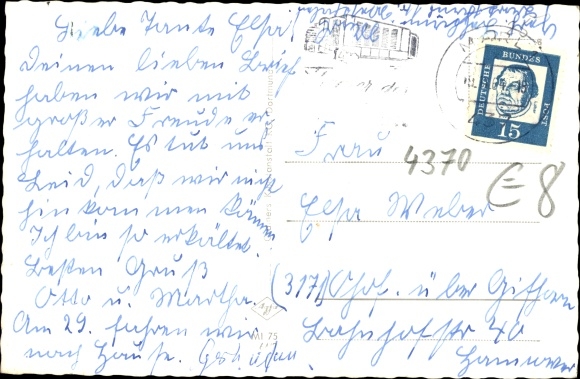 Liebe Tante Elsa
Deinen lieben Brief
haben wir mit
großer Freude er-
halten. Es tut uns
Leid, daß wir nicht
hinkommen können
Ich bin so erkältet.
Besten Gruß
Otto u. Martha.
Am 29. fahren wir
nach Hause.
DEUTSCHE BUNDESPOST
15
Frau
4370
€ 8
Elsa Weber
(3171) über Gifhorn
Bahnhofstr 40
Hannover